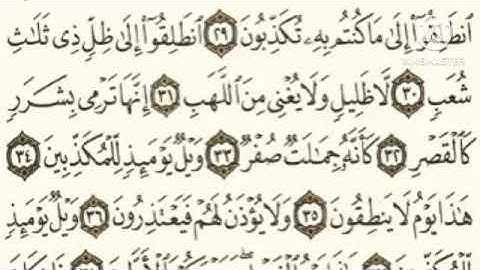 ٱنطَلِقُوٓا۟ إِلَىٰ مَا كُنتُم بِهِۦ تُكَذِّبُونَ ٢٩ ٱنطَلِقُوٓا۟ إِلَىٰ ظِلٍّ ذِى ثَلَٰثِ
شُعَبٍ ٣٠ لَّا ظَلِيلٍ وَلَا يُغْنِى مِنَ ٱللَّهَبِ ٣١ إِنَّهَا تَرْمِى بِشَرَرٍ
كَٱلْقَصْرِ ٣٢ كَأَنَّهُۥ جِمَٰلَتٌ صُفْرٌ ٣٣ وَيْلٌ يَوْمَئِذٍ لِّلْمُكَذِّبِينَ ٣٤
هَٰذَا يَوْمُ لَا يَنطِقُونَ ٣٥ وَلَا يُؤْذَنُ لَهُمْ فَيَعْتَذِرُونَ ٣٦ وَيْلٌ يَوْمَئِذٍ